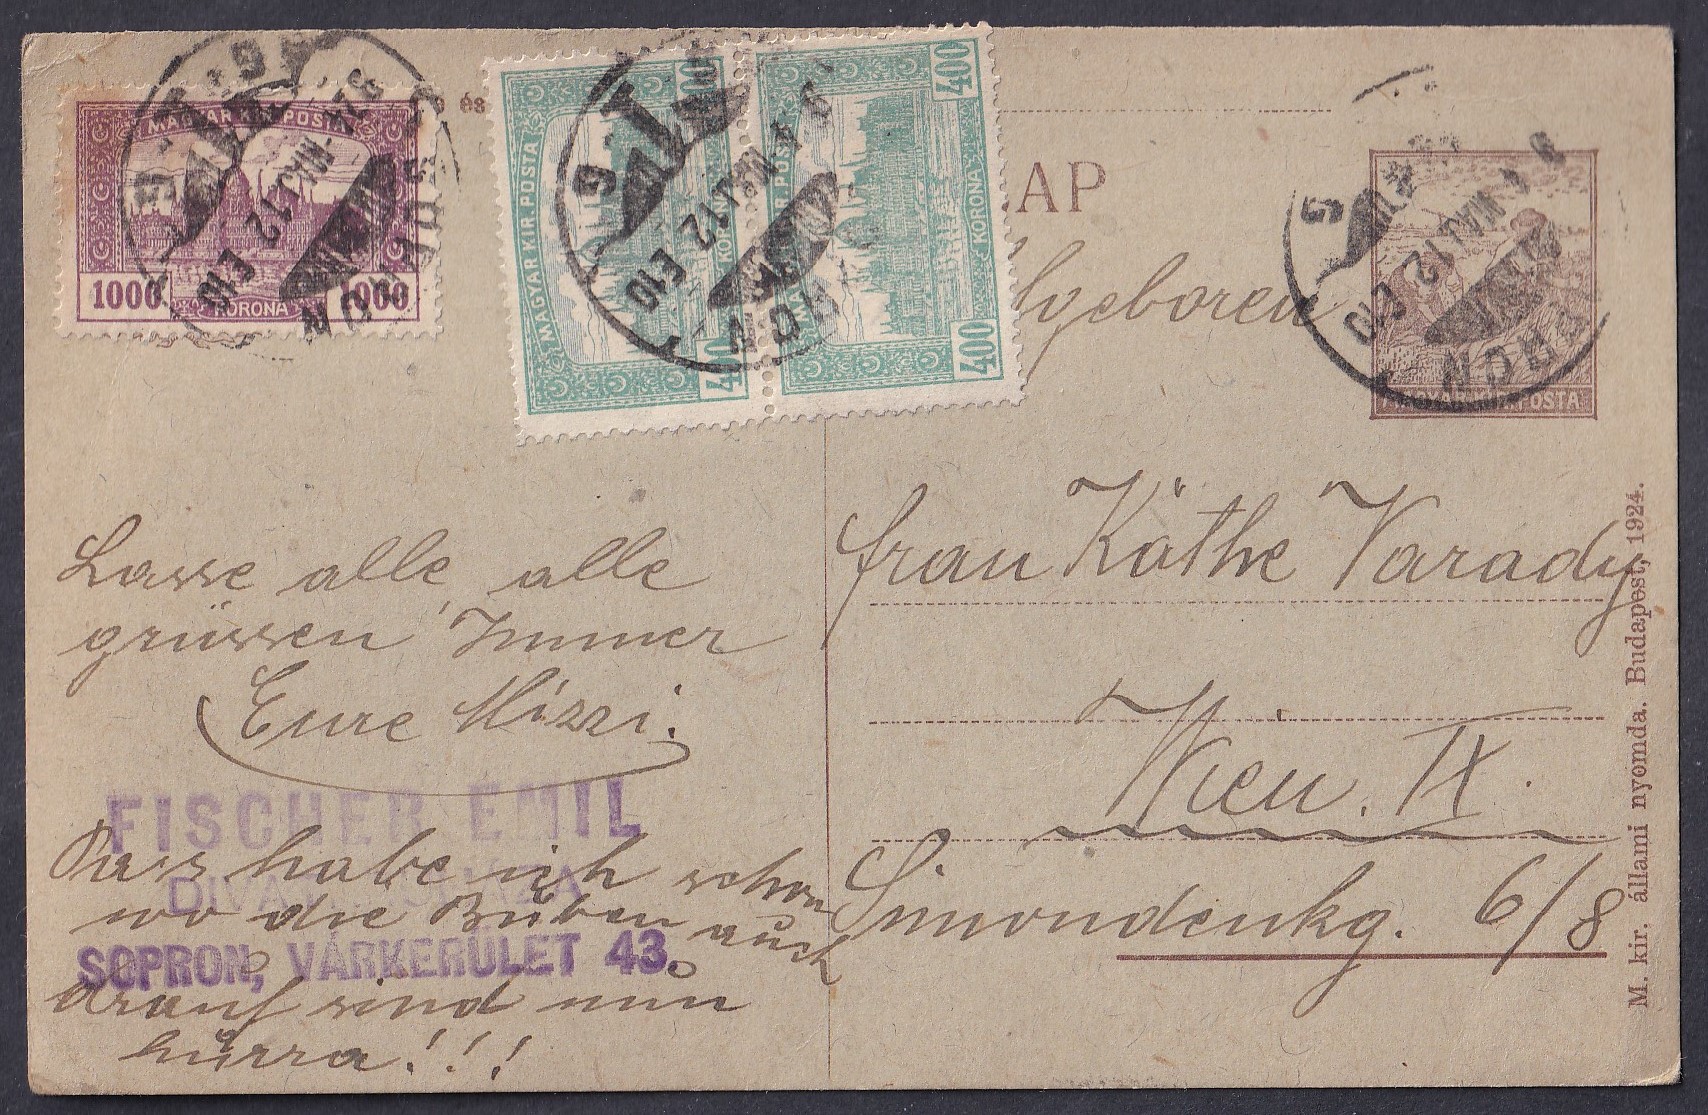 és
AP
MAGYAR KIR. POSTA
1000 1000
KORONA
MAGYAR KIR. POSTA
400
400
KORONA
MAGYAR KIR. POSTA
400
400
KORONA
SOPRON
924 MAJ. 12 E10
924 MAJ. 12 E10
924 MAJ. 12 E10
MAGYAR KIR. POSTA
Frau Käthe Varady
Wien. IX.
6/8
M. kir. állami nyomda. Budapest, 1924.
Lasse alle, alle
grüssen, Immer
Eure Mizzi.
FISCHER EMIL
SOPRON, VÁRKERÜLET 43.
Pass habe ich schon
wo die Buben auch
drauf sind nun
hurra!!!